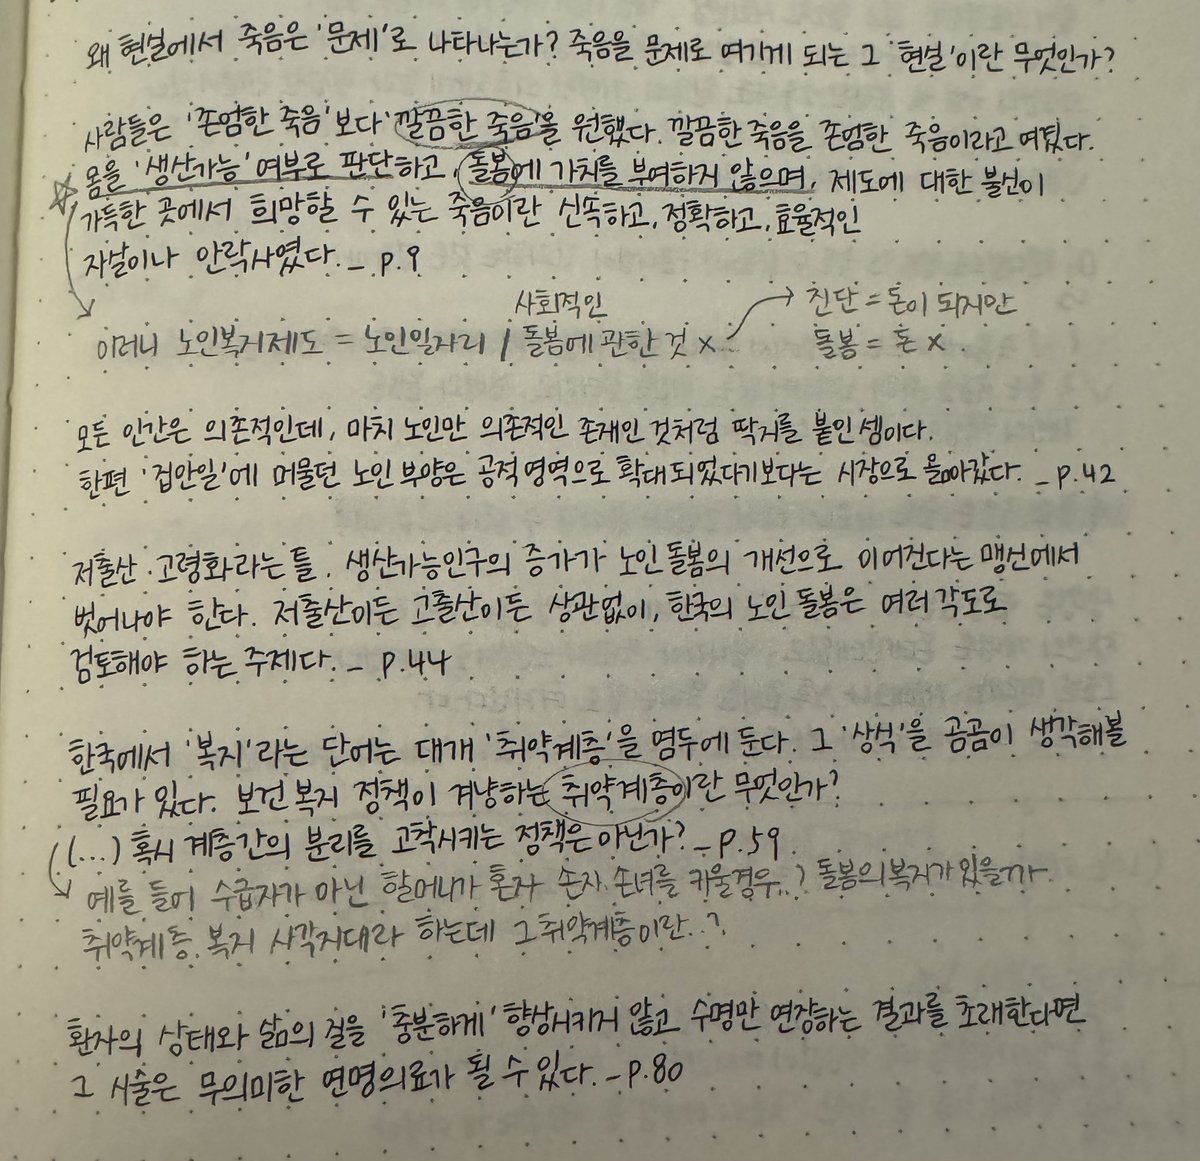 왜 현실에서 죽음은 '문제'로 나타나는가? 죽음을 문제로 여기게 되는 그 '현실'이란 무엇인가?
사람들은 '존엄한 죽음'보다 '깔끔한 죽음'을 원했다. 깔끔한 죽음을 존엄한 죽음이라고 여겼다.
몸을 '생산가능' 여부로 판단하고, 돌봄에 가치를 부여하지 않으며, 제도에 대한 불신이
가득한 곳에서 희망할 수 있는 죽음이란 신속하고, 정확하고, 효율적인
자살이나 안락사였다. _ p.9
사회적인
→ 진단 = 돈이 되지만
이러니 노인복지제도 = 노인일자리 / 돌봄에 관한 것 x
돌봄 = 돈 x
모든 인간은 의존적인데, 마치 노인만 의존적인 존재인 것처럼 딱지를 붙인 셈이다.
한편 '집안일'에 머물던 노인 부양은 공적 영역으로 확대되었다기보다는 시장으로 옮아갔다. _ p.42
저출산·고령화라는 틀. 생산가능인구의 증가가 노인 돌봄의 개선으로 이어진다는 맹신에서
벗어나야 한다. 저출산이든 고출산이든 상관없이, 한국의 노인 돌봄은 여러 각도로
검토해야 하는 주제다. _ p.44
한국에서 '복지'라는 단어는 대개 '취약계층'을 염두에 둔다. 그 '상식'을 곰곰이 생각해볼
필요가 있다. 보건 복지 정책이 겨냥하는 취약계층이란 무엇인가?
(...) 혹시 계층간의 분리를 고착시키는 정책은 아닌가? _ p.59
예를 들어 수급자가 아닌 할머니가 혼자 손자, 손녀를 키울경우..? 돌봄의 복지가 있을까
취약계층, 복지 사각지대라 하는데 그 취약계층이란..?
환자의 상태와 삶의 질을 '충분하게' 향상시키지 않고 수명만 연장하는 결과를 초래한다면
그 시술은 무의미한 연명의료가 될 수 있다. _ p.80